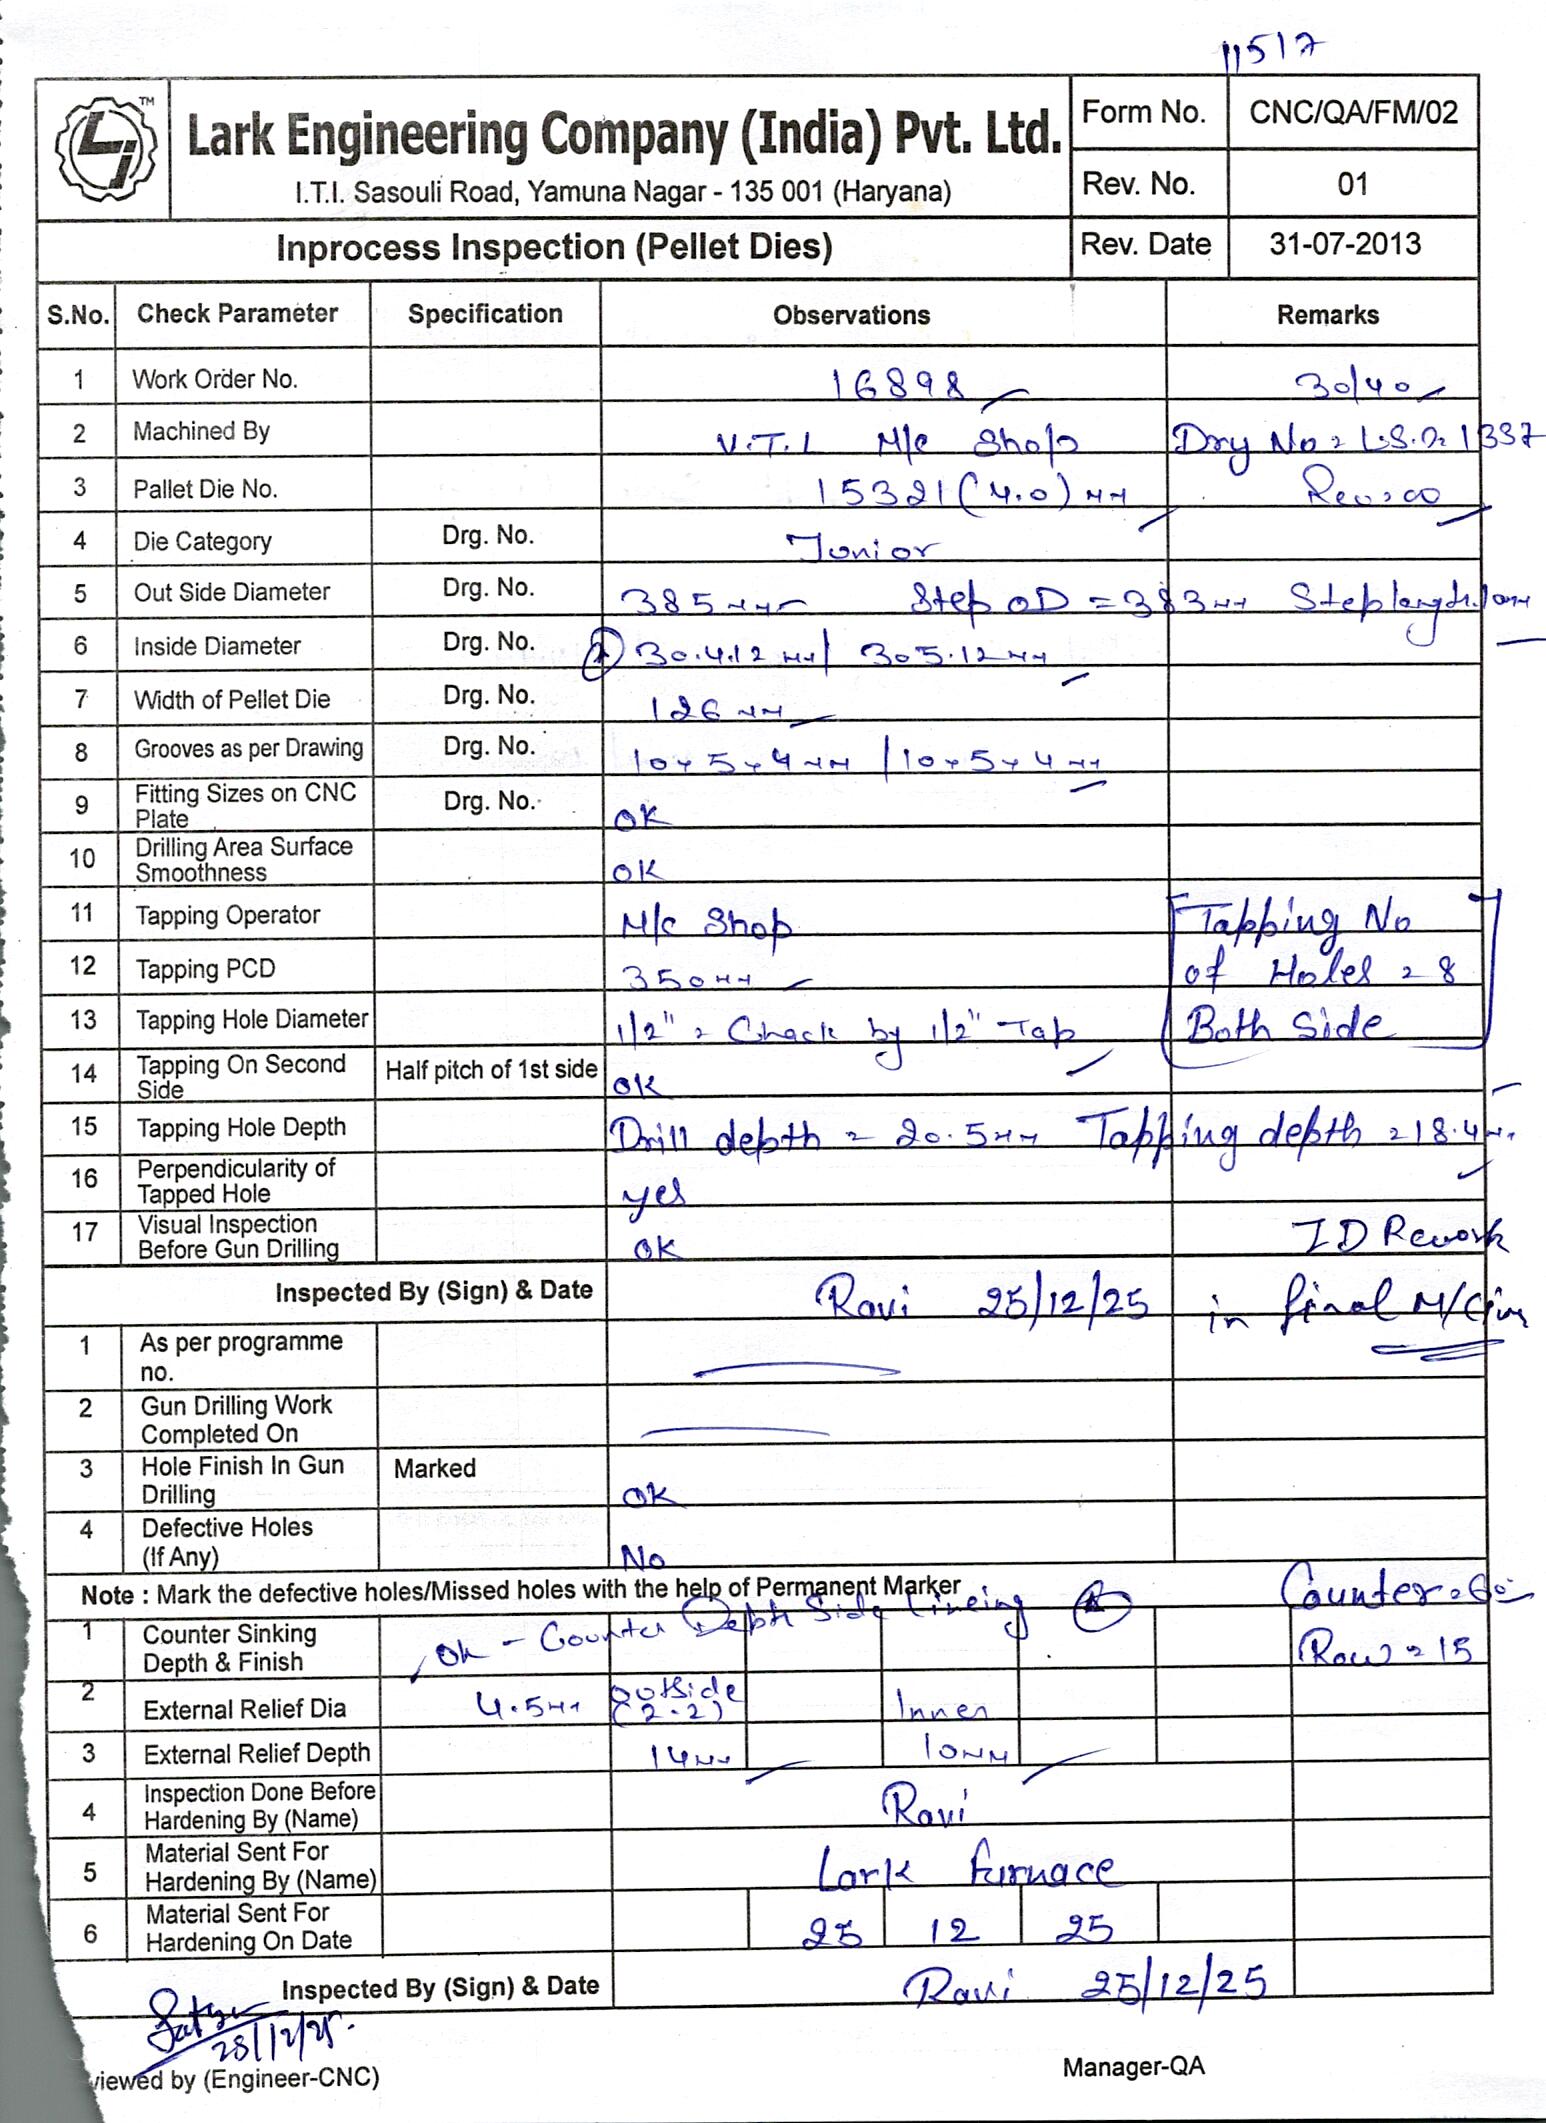 11517
TM
Lark Engineering Company (India) Pvt. Ltd.
I.T.I. Sasouli Road, Yamuna Nagar - 135 001 (Haryana)
Form No. CNC/QA/FM/02
Rev. No. 01
Inprocess Inspection (Pellet Dies) Rev. Date 31-07-2013
S.No. Check Parameter Specification Observations Remarks
1 Work Order No. 16898 30/40
2 Machined By V.T.L M/c Shop Drg No = L.S.D. 1337
3 Pallet Die No. 15321 (4.0) mm Rev=00
4 Die Category Drg. No. Junior
5 Out Side Diameter Drg. No. 385mm Step OD = 383mm Step length
6 Inside Diameter Drg. No. 304.12 mm / 305.12mm
7 Width of Pellet Die Drg. No. 126 mm
8 Grooves as per Drawing Drg. No. 10x5x4mm / 10x5x4mm
9 Fitting Sizes on CNC Plate Drg. No. OK
10 Drilling Area Surface Smoothness OK
11 Tapping Operator M/c Shop Tapping No
12 Tapping PCD 350mm of Holes = 8
13 Tapping Hole Diameter 1/2" = Check by 1/2" Tap Both Side
14 Tapping On Second Side Half pitch of 1st side OK
15 Tapping Hole Depth Drill depth = 20.5mm Tapping depth = 18.4mm
16 Perpendicularity of Tapped Hole yes
17 Visual Inspection Before Gun Drilling OK ID Rework
Inspected By (Sign) & Date Ravi 25/12/25 in final M/Cing
1 As per programme no.
2 Gun Drilling Work Completed On
3 Hole Finish In Gun Drilling Marked OK
4 Defective Holes (If Any) No
Note : Mark the defective holes/Missed holes with the help of Permanent Marker Counter = 60
1 Counter Sinking Depth & Finish Ok - Counter Depth Side Row = 15
2 External Relief Dia 4.5mm Outside (2.2) Inner
3 External Relief Depth 14mm 10mm
4 Inspection Done Before Hardening By (Name) Ravi
5 Material Sent For Hardening By (Name) Lark Furnace
6 Material Sent For Hardening On Date 25 12 25
Inspected By (Sign) & Date Ravi 25/12/25
viewed by (Engineer-CNC) Manager-QA